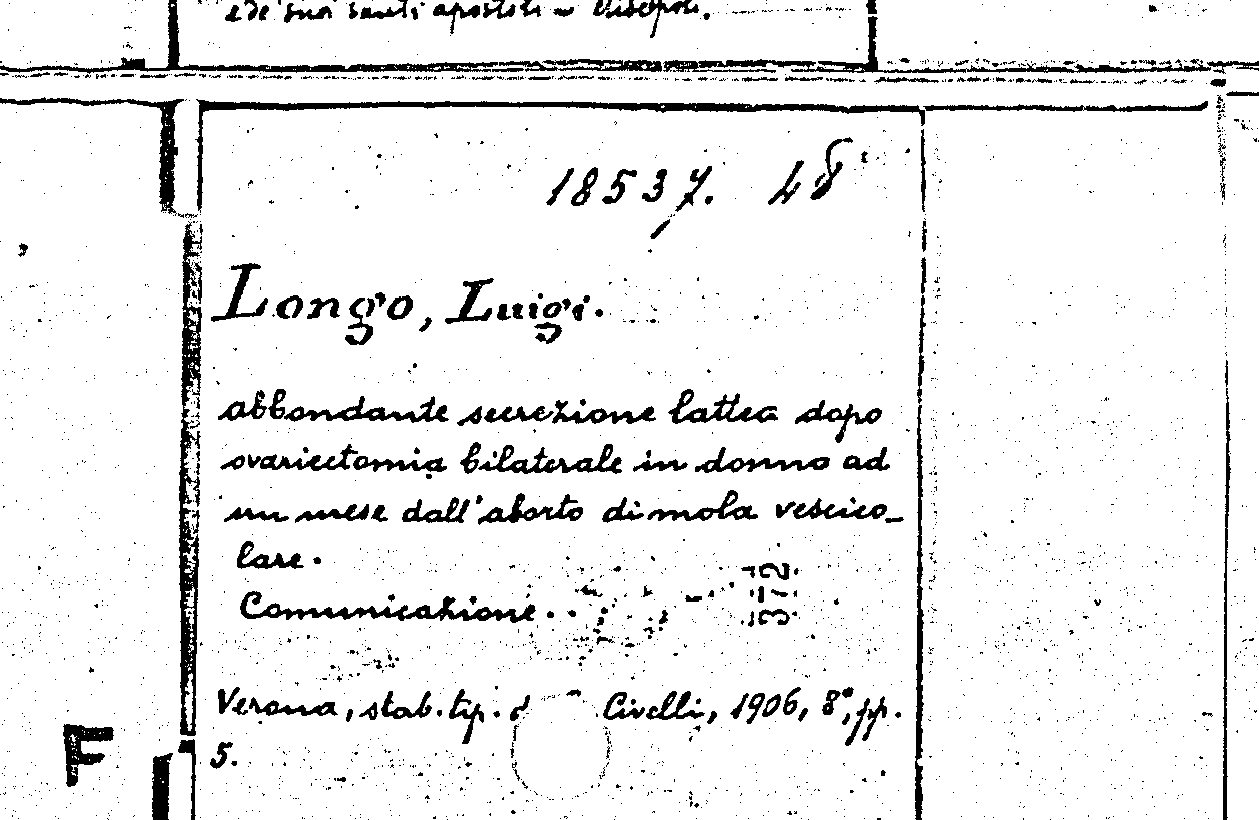 e de' suoi santi apostoli e discepoli.
18537. 48
Longo, Luigi.
abbondante secrezione lattea dopo
ovariectomia bilaterale in donna ad
un mese dall'aborto di mola vescico_
lare.
Comunicazione..
372
Verona, stab. tip. d Civelli, 1906, 8°, pp.
5.
F